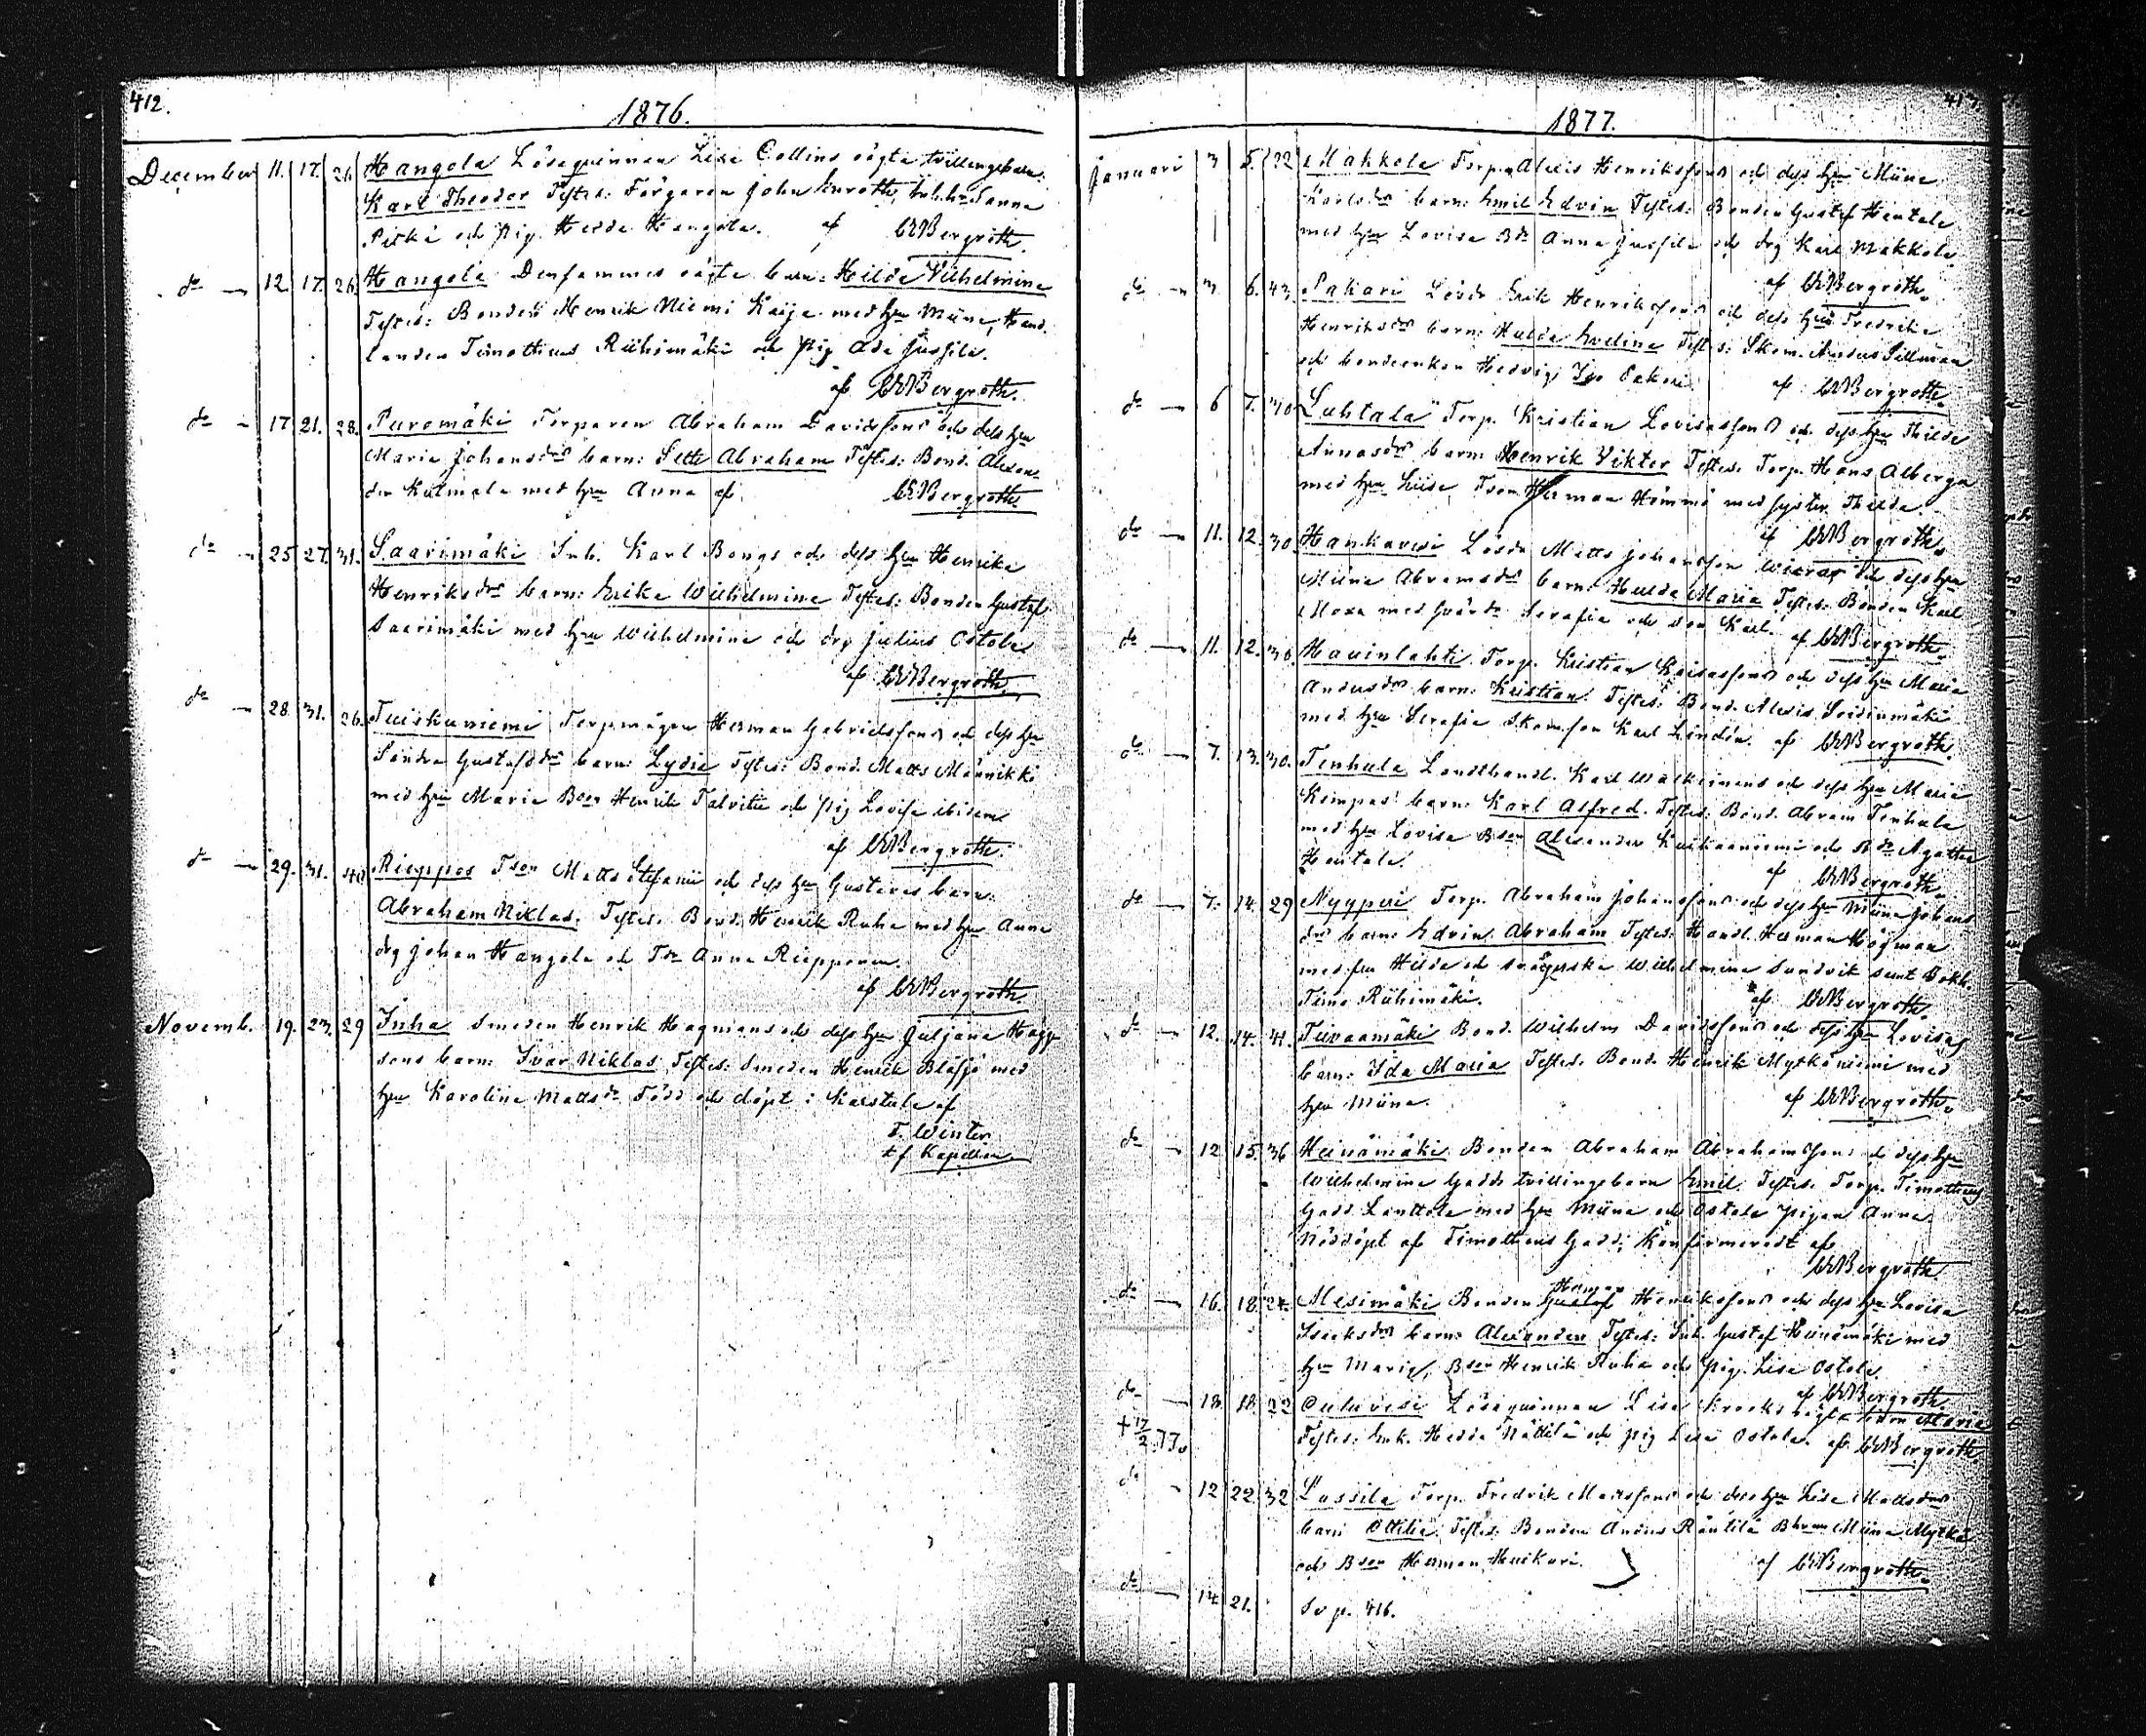 412.
1876.
December 11. 17. 26 Hangola Lösqvinnan Lisa Collins oägta tvillingebarn:
Karl Theodor Testes: Färgaren John Sanna
och pig. Hedda Hangola. af CWBergroth.
do — 12. 17. 26. Hangola Densammas oägta barn: Hilda Vilhelmina
Testes: Bonden Henrik Niemi Kaija med hu Miina, Hand-
landen Timotheus Riihimäki och pig Ada Jussila.
af CWBergroth.
do — 17 21. 28. Puromäki Torparen Abraham Davidssons och dess hu
Maria Johansdrs barn: Abraham Testes: Bond. Alexan-
der Kulmala med hu Anna af CWBergroth.
do — 25 27. 31. Saarimäki Inh. Karl Bongs och dess hu Henrika
Henriksdrs barn: Erika Wilhelmina Testes: Bonden Gustaf
Saarimäki med hu Wilhelmina och drg Julius Ostola
af CWBergroth.
do — 28. 31. 26. Tuiskuniemi Torpmågen Herman Gabrielssons och dess hu
Sandra Gustafsdrs barn: Lydia Testes: Bond. Matts Männikki
med hu Maria Bson Henrik Talvitie och pig Lovisa ibidem
af CWBergroth.
do — 29. 31. 40 Rieppos Tson Matts Stefanii och dess hu Gustavas barn:
Abraham Niklas. Testes. Bond. Henrik Ruha med hu Anna
drg Johan Hangola och Tdr Anna Riepponen.
af CWBergroth.
Novemb. 19. 23. 29 Inha Smeden Henrik Hagmans och dess hu Juljana Hägg-
sons barn: Ivar Niklas Testes: Smeden Henrik Blåfjé med
hu Karolina Mattsdr Född och döpt i Karstula af
T. Winter
tf Kapellan.
1877.
Januari 3 5. 32 Makkola Torp. Alexis Henrikssons och dess hu Miina
Karlsdrs barn: Emil Edvin Testes: Bonden Gustaf Hautala
med hu Lovisa Bdr Anna Jussila och drg Karl Makkola
af CWBergroth.
do — 3. 6. 43 Pakari Lösdr Erik Henrikssons och dess hus Fredrika
Henriksdrs barn: Hulda Evelina Testes: Skom. Anders Sillman
och bondeenkan Hedvig Pakari af CWBergroth.
do — 6 7. 30 Luhtala Torp. Kristian Lovisassons och dess hu Thilda
Annasdrs barn: Henrik Viktor Testes. Torp. Hans Alberga
med hu Lisa, Tson Herman Hömmö med syster Thilda.
af CWBergroth.
do — 11. 12. 30 Hankavesi Lösdr Matts Johansson och dess hu
Miina Abramsdrs barn: Hulda Maria Testes: Bonden Karl
Moxa med svärdr Serafia och son Karl. af CWBergroth.
do — 11. 12. 36. Havinlahti Torp. Kristian Kaisassons och dess hu Maria
Andersdrs barn: Kristian. Testes: Bond. Alexis Soidinmäki
med hu Serafia Skom.son Karl Lindén. af CWBergroth.
do — 7. 13. 30. Tenhula Landthandl. Karl Walkeinens och dess hu Maria
Kempas barn: Karl Alfred. Testes: Bond. Abram Tenhula
med hu Lovisa Bson Alexander och Bdr Agatha
Hautala. af CWBergroth.
do — 7. 14. 29 Nyyperi Torp. Abraham Johanssons och dess hu Miina Johans-
drs barn: Edvin Abraham Testes: Handl. Herman Högman
med fru Hilda och svägerska Wilhelmina Sundvik samt Bokh.
Timo Riihimäki. af CWBergroth.
do — 12. 14. 41. Turvaamäki Bond. Wilhelm Davidssons och dess hu Lovisas
barn: Ida Maria Testes: Bond. Henrik Mytkäniemi med
hu Miina. af CWBergroth.
do — 12 15. 36 Heinämäki Bonden Abraham Abrahamssons o dess hu
Wilhelmina Gadds tvillingebarn Emil. Testes. Torp. Timotheus
Gadd Lanttola med hu Miina och Ostola pigan Anna.
Nöddöpt af Timotheus Gadd; konfirmeradt af
CWBergroth
Herman
do — 16. 18. 24. Mesimäki Bonden Gustaf Henrikssons och dess hu Lovisa
Isaksdrs barn: Alexander Testes: Inh. Gustaf Heinämäki med
hu Maria, Bson Henrik Ruha och pig. Lisa Ostola.
af CWBergroth
do — 18. 18. 22 Ouluvesi Lösqvinnan Lisa Krooks oägta barn Maria
+ 17/2 77. Testes: Enk. Hedda Nättilä och pig Lisa Ostola. af CWBergroth
do — 12 22. 32 Lassila Torp. Fredrik Mattssons och dess hu Lisa Mattsdrs
barn Ottilia. Testes: Bonden Anders Räntilä Miina Mytkä
och Bson Herman Huikari. af CWBergroth.
do — 14 21. Se p. 416.